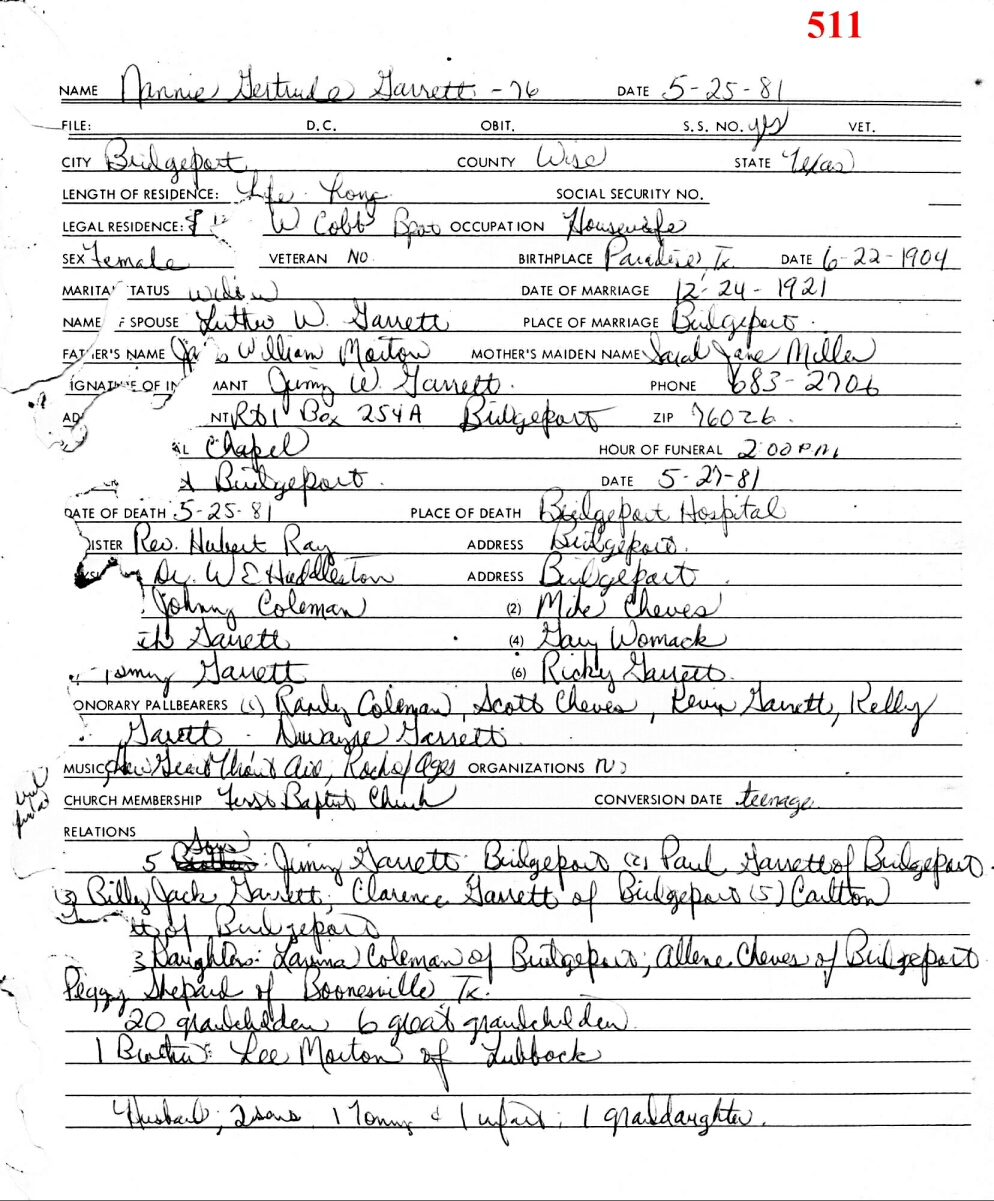 511
NAME Nannie Gertrude Garrett - 76 DATE 5-25-81
FILE: D.C. OBIT. S.S. NO. yes VET.
CITY Bridgeport COUNTY Wise STATE Texas
LENGTH OF RESIDENCE: Life Long SOCIAL SECURITY NO.
LEGAL RESIDENCE: W Cobb Bpot OCCUPATION Housewife
SEX Female VETERAN NO BIRTHPLACE Paradise, Tx. DATE 6-22-1904
MARITA TATUS Widow DATE OF MARRIAGE 12-24-1921
NAME F SPOUSE Luther W. Garrett PLACE OF MARRIAGE Bridgeport.
FATHER'S NAME William Morton MOTHER'S MAIDEN NAME Sarah Jane Miller
IGNATURE OF IN MANT Jimmy W. Garrett. PHONE 683-2706
AD NT Rt 1 Box 254A Bridgeport ZIP 76026.
AL Chapel HOUR OF FUNERAL 2:00 PM
Bridgeport. DATE 5-27-81
DATE OF DEATH 5-25-81 PLACE OF DEATH Bridgeport Hospital
ISTER Rev. Hubert Ray ADDRESS Bridgeport.
Dr. W E Huddleston ADDRESS Bridgeport.
Johnny Coleman (2) Mike Cheves
Garrett (4) Gary Womack
Garrett (6) Ricky Garrett.
ONORARY PALLBEARERS (1) Randy Coleman, Scott Cheves, Kevin Garrett, Kelly
Garett - Dwayne Garrett.
MUSIC How Great Thout Art, Rock of Ages ORGANIZATIONS no
CHURCH MEMBERSHIP First Baptist Church CONVERSION DATE teenage.
RELATIONS
Sons
5 Brothers: Jimmy Garrett Bridgeport (2) Paul Garrett of Bridgeport.
(3) Billy Jack Garrett, Clarence Garrett of Bridgeport (5) Carlton
tt of Bridgeport
3 Daughters: Lavina Coleman of Bridgeport; Allene Cheves of Bridgeport
Peggy Shepard of Boonesville Tx.
20 grandchilden 6 great grandchilden.
1 Brother: Lee Morton of Lubbock
Husband; 2 sons 1 Tommy & 1 infant; 1 granddaughter.